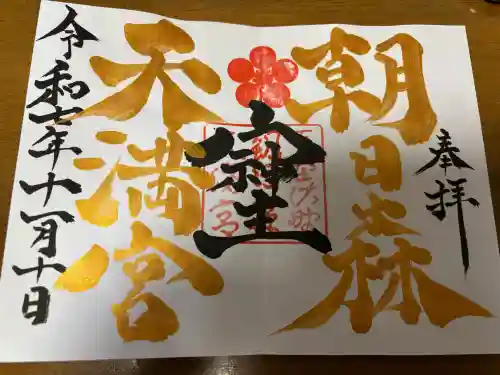 奉拝
朝日森
天満宮
令和七年十一月十日